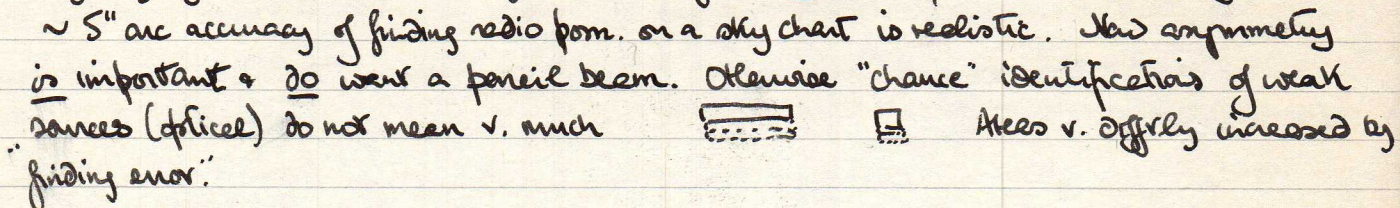 ~ 5" arc accuracy of finding radio posn. on a sky chart is realistic. Now asymmetry
is important & do want a pencil beam. Otherwise "chance" identifications of weak
sources (optical) do not mean v. much Areas v. diffrly increased by
"finding error".